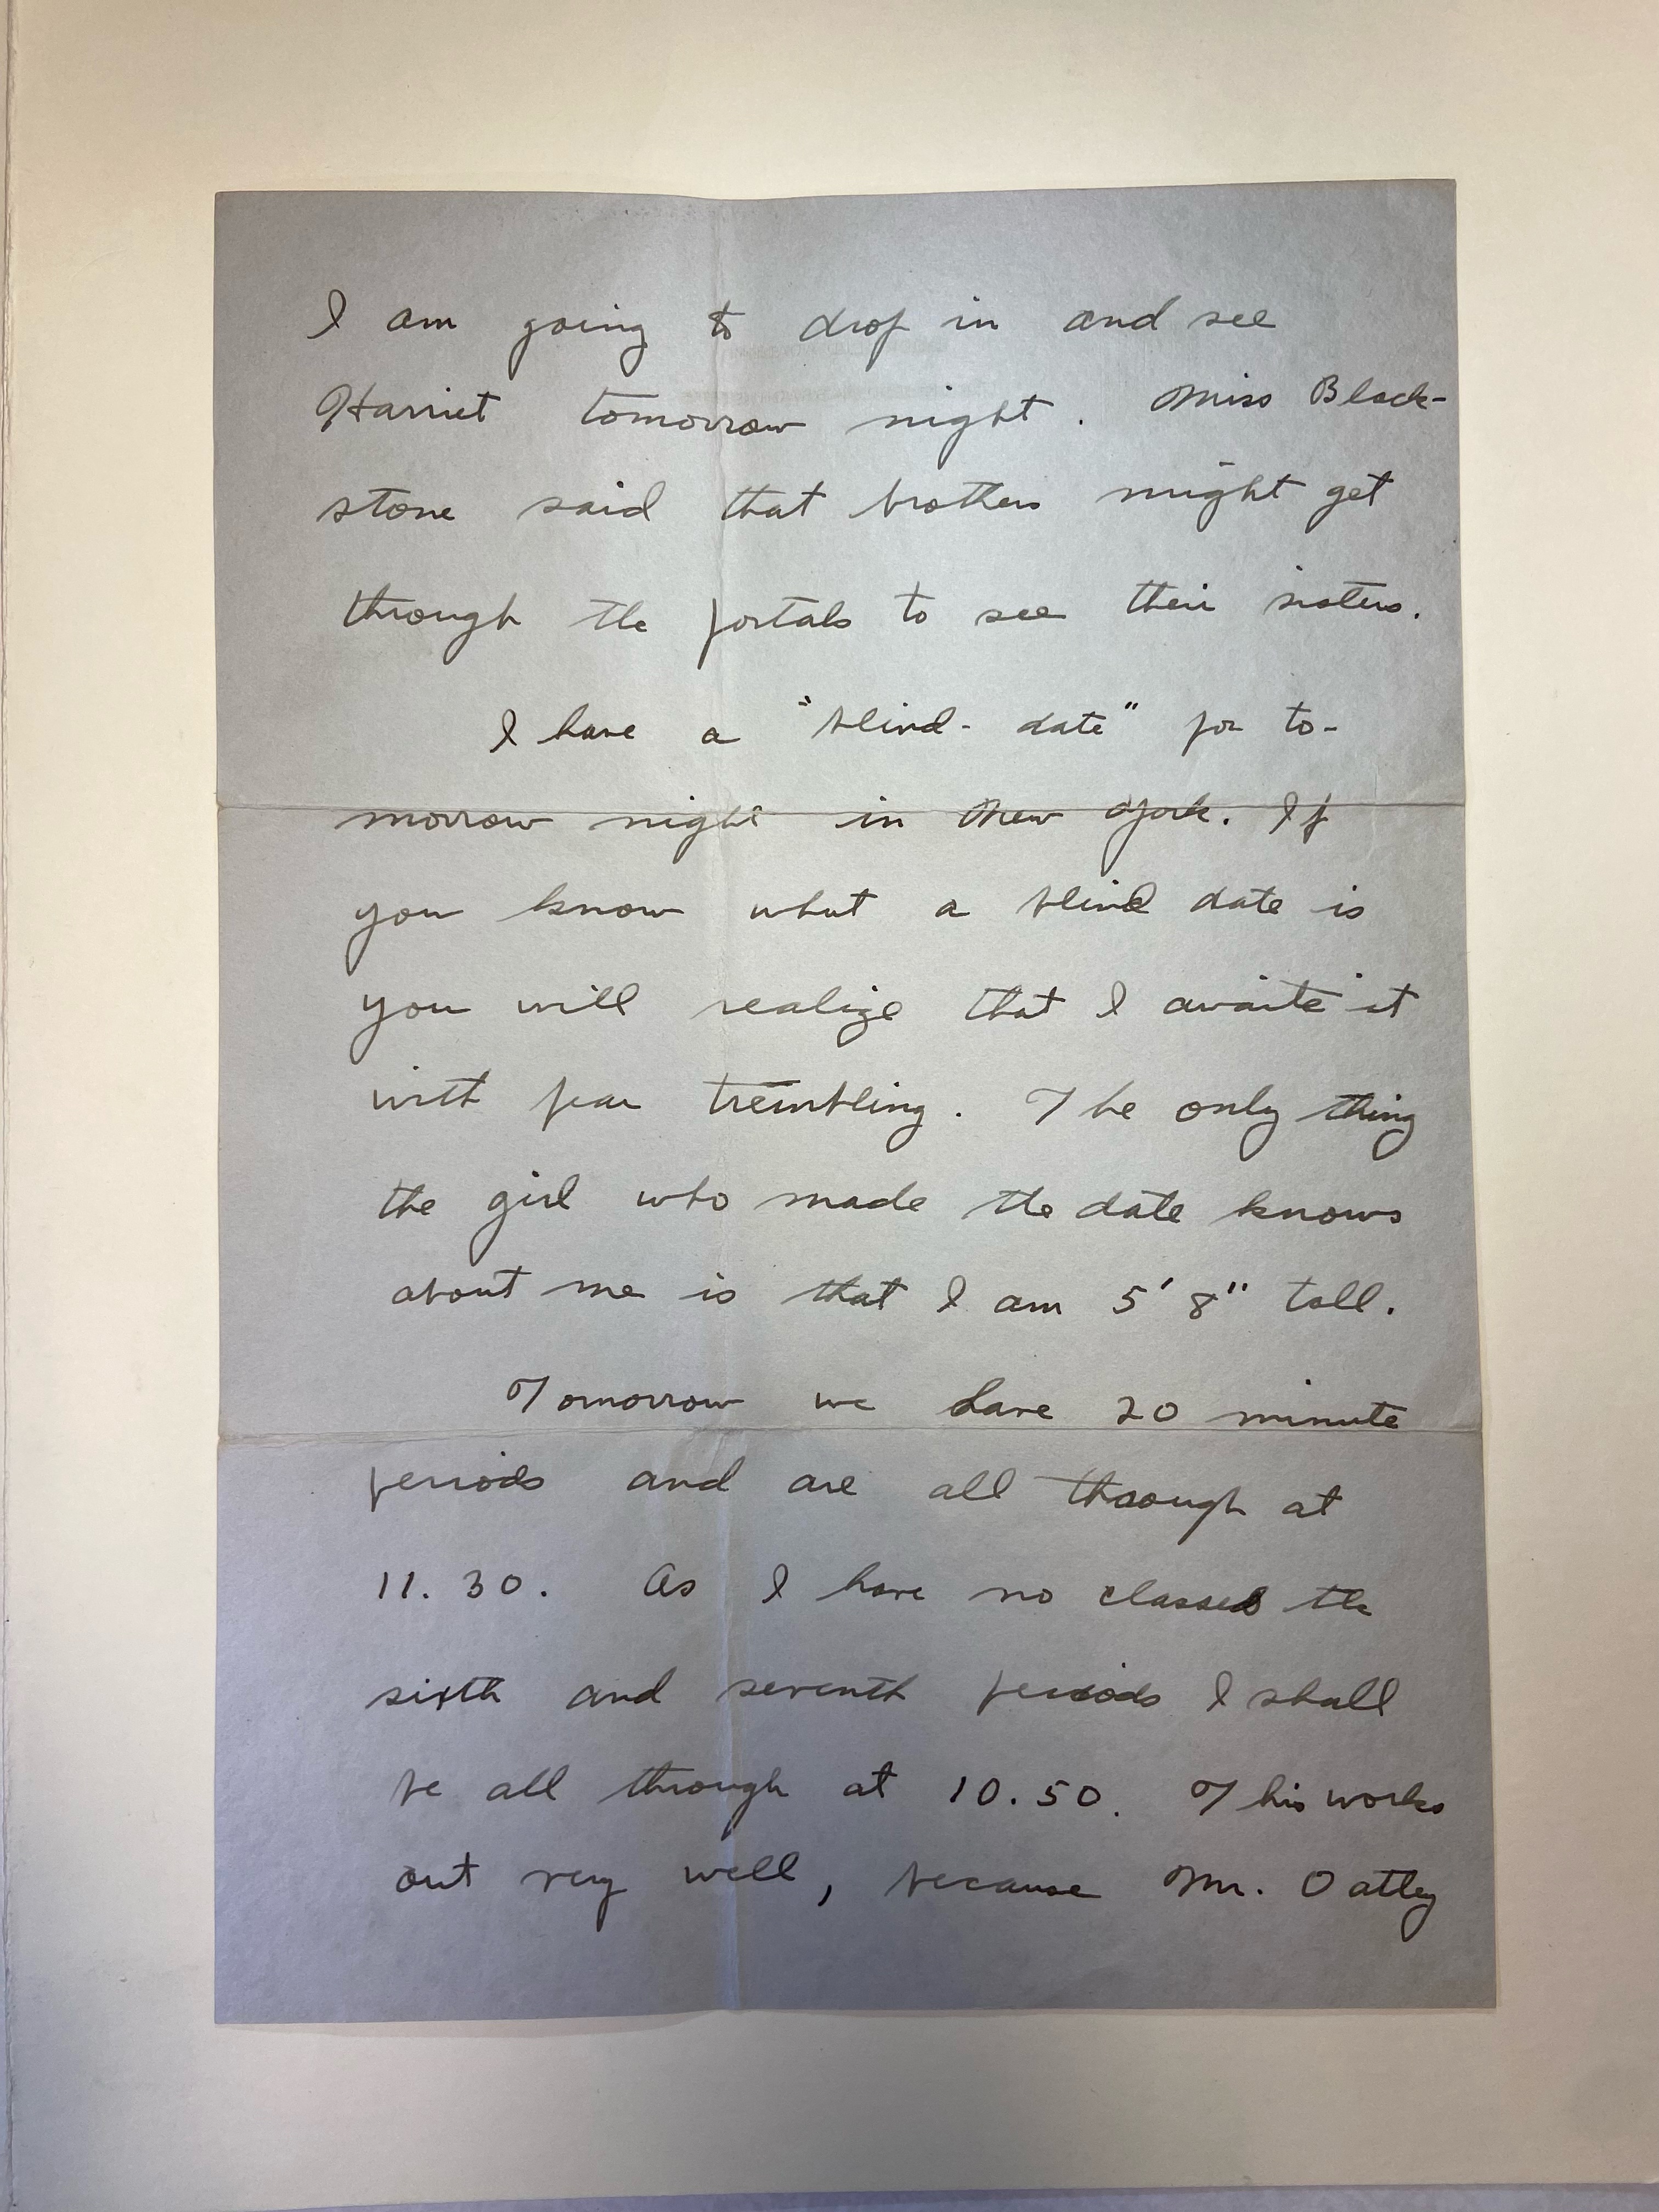 I am going to drop in and see
Harriet tomorrow night. Miss Black-
stone said that brothers might get
through the portals to see their sisters.
I have a "blind-date" for to-
morrow night in New York. If
you know what a blind date is
you will realize that I awaite it
with fear trembling. The only thing
the girl who made the date knows
about me is that I am 5' 8" tall.
Tomorrow we have 20 minute
periods and are all through at
11.30. As I have no classes the
sixth and seventh periods I shall
be all through at 10.50. This works
out very well, because Mr. Oatley